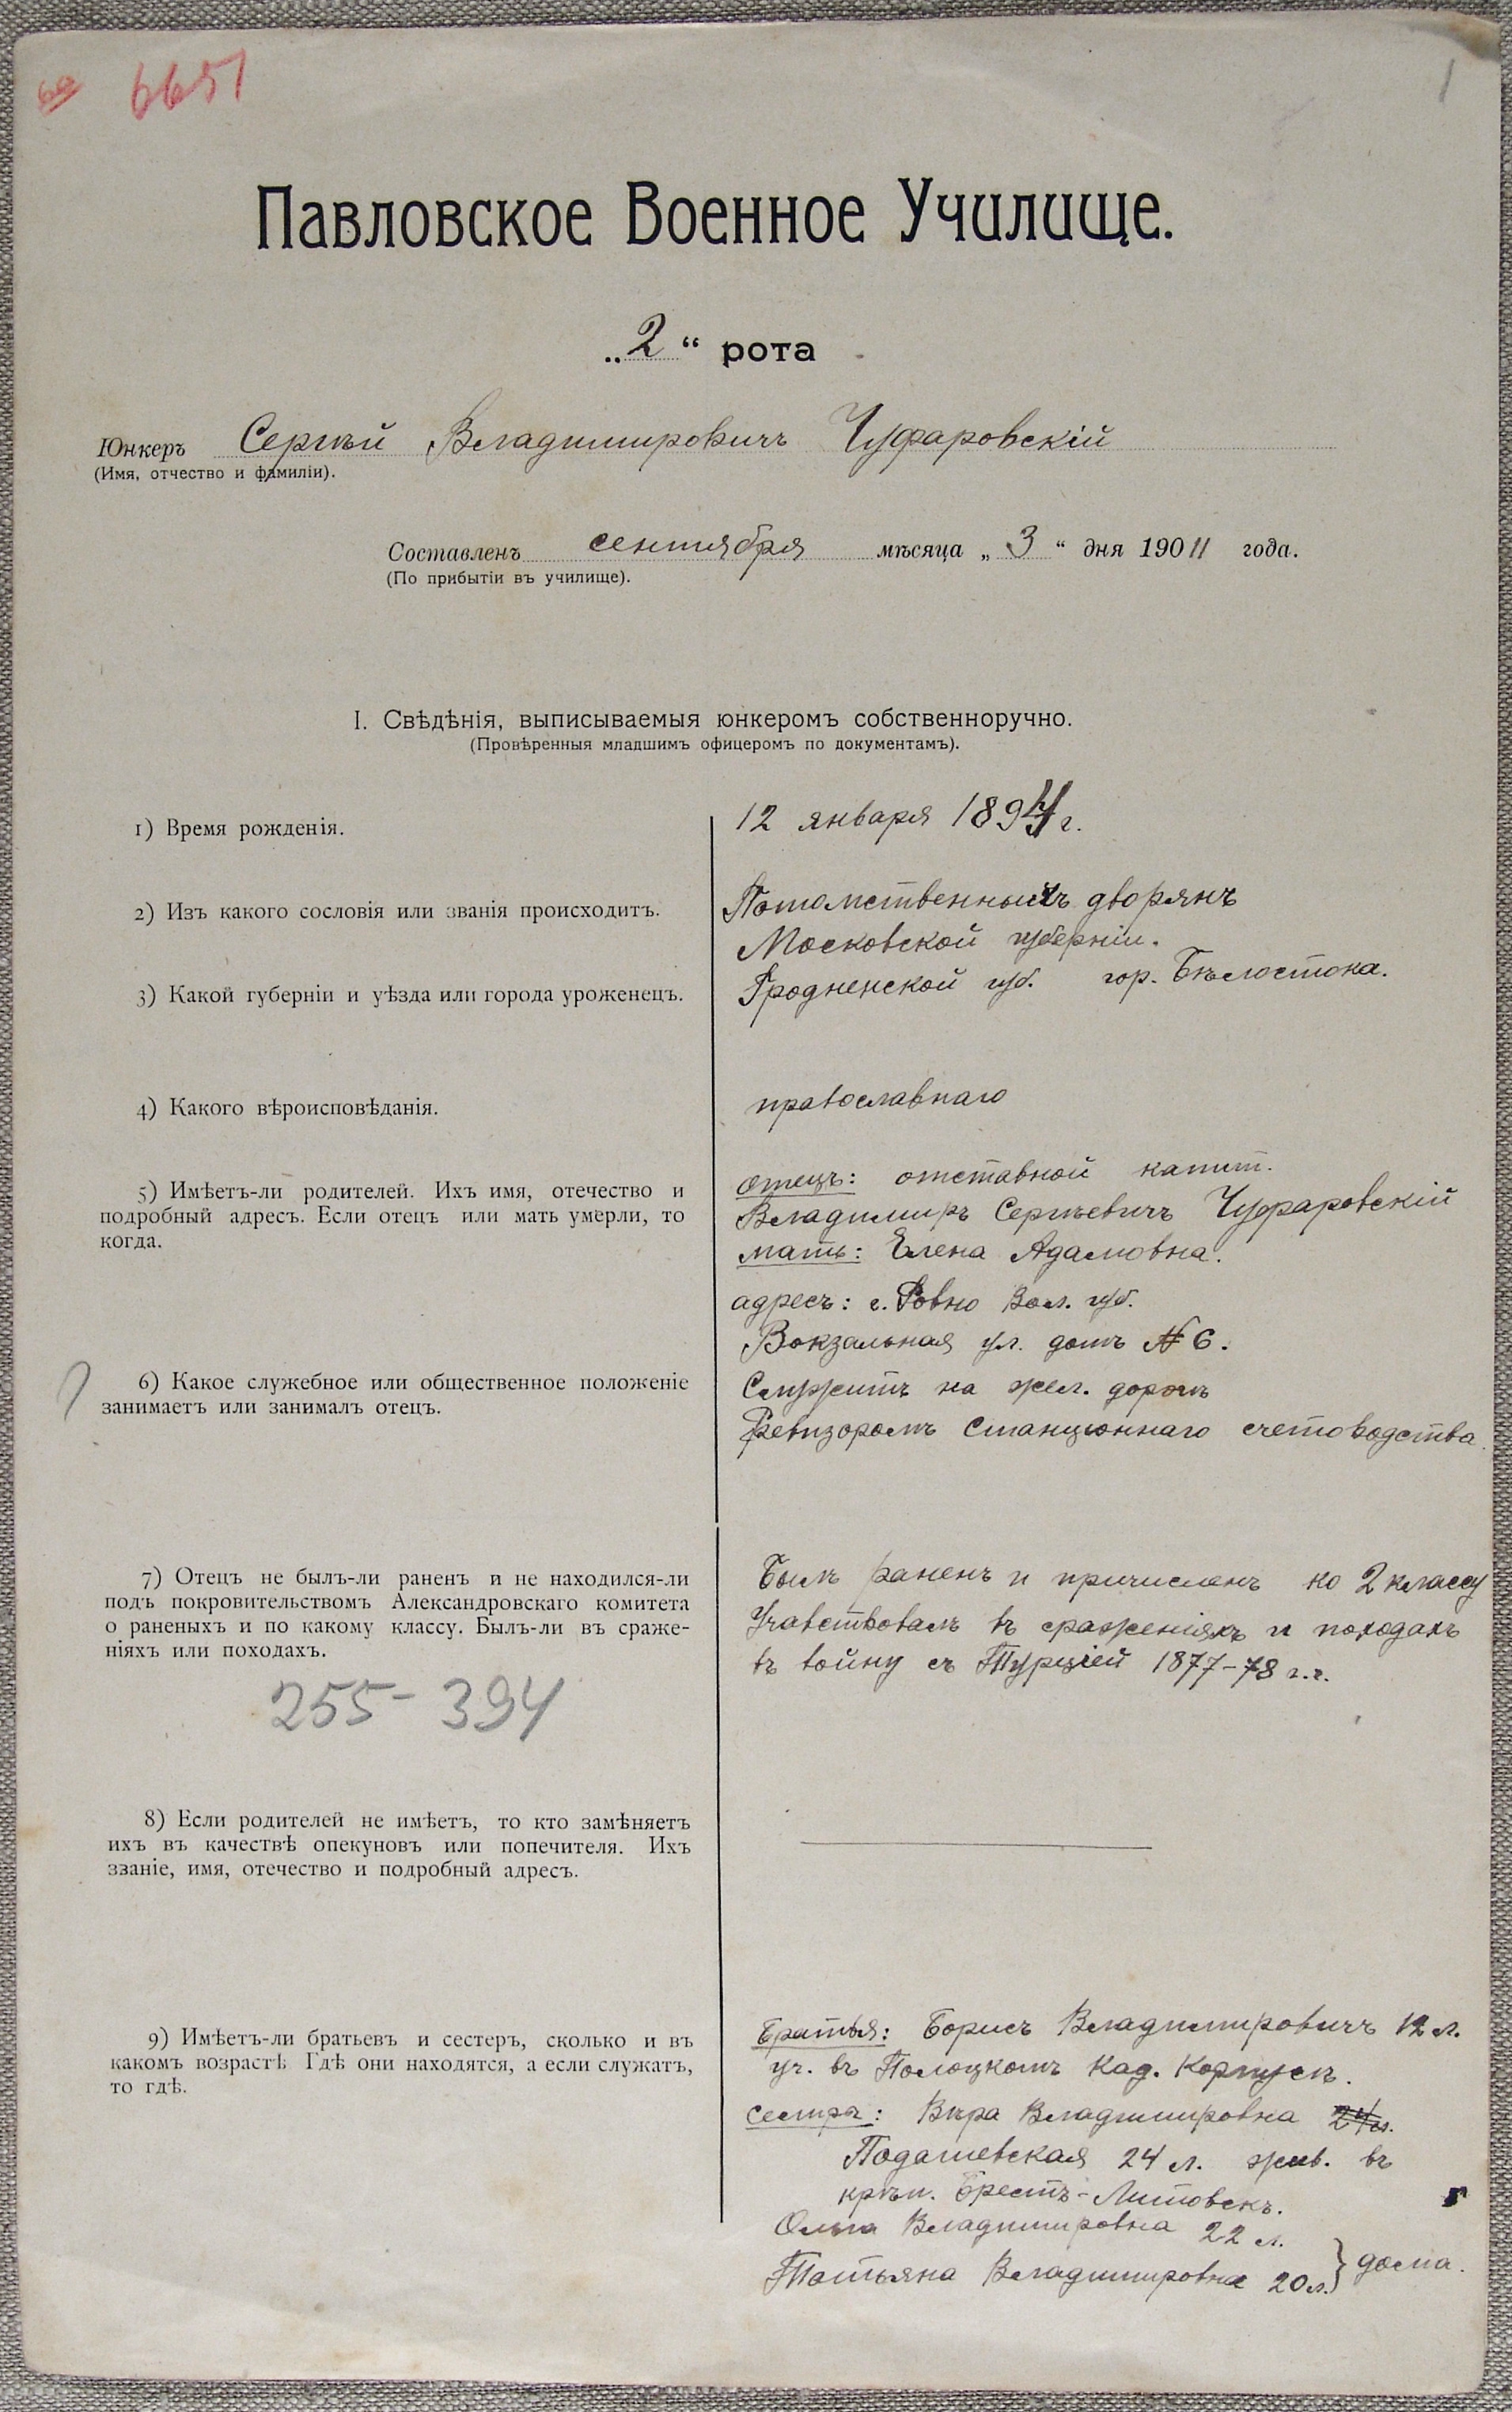 60 6651 1
Павловское Военное Училище.
„2“ рота
Юнкеръ Сергѣй Владимировичъ Чуфаровскій
(Имя, отчество и фамиліи).
Составленъ сентября мѣсяца „3“ дня 19011 года.
(По прибытіи въ училище).
I. Свѣдѣнія, выписываемыя юнкеромъ собственноручно.
(Провѣренныя младшимъ офицеромъ по документамъ).
1) Время рожденія.
12 января 1894 г.
2) Изъ какого сословія или званія происходитъ.
Потомственныхъ дворянъ
Московской губерніи.
3) Какой губерніи и уѣзда или города уроженецъ.
Гродненской губ. гор. Бѣлостока.
4) Какого вѣроисповѣданія.
православнаго
5) Имѣетъ-ли родителей. Ихъ имя, отечество и
подробный адресъ. Если отецъ или мать умерли, то
когда.
отецъ: отставной капит.
Владимиръ Сергѣевичъ Чуфаровскій
мать: Елена Адамовна.
адресъ: г. Ровно Вол. губ.
Вокзальная ул. домъ № 6.
6) Какое служебное или общественное положеніе
занимаетъ или занималъ отецъ.
Служитъ на жел. дорогѣ
Ревизоромъ Станціоннаго счетоводства.
7) Отецъ не былъ-ли раненъ и не находился-ли
подъ покровительствомъ Александровскаго комитета
о раненыхъ и по какому классу. Былъ-ли въ сраже-
ніяхъ или походахъ.
255-394
Былъ раненъ и причисленъ ко 2 классу
Учавствовалъ въ сраженіяхъ и походахъ
въ войну съ Турціей 1877-78 г.г.
8) Если родителей не имѣетъ, то кто замѣняетъ
ихъ въ качествѣ опекуновъ или попечителя. Ихъ
званіе, имя, отечество и подробный адресъ.
9) Имѣетъ-ли братьевъ и сестеръ, сколько и въ
какомъ возрастѣ Гдѣ они находятся, а если служатъ,
то гдѣ.
Братья: Борисъ Владимировичъ 12 л.
уч. въ Полоцкомъ Кад. Корпусѣ.
сестры: Вѣра Владимировна 24 л.
24 л. жив. въ
крѣп. Брестъ-Литовскъ.
Ольга Владимировна 22 л.
Татьяна Владимировна 20 л. } дома.